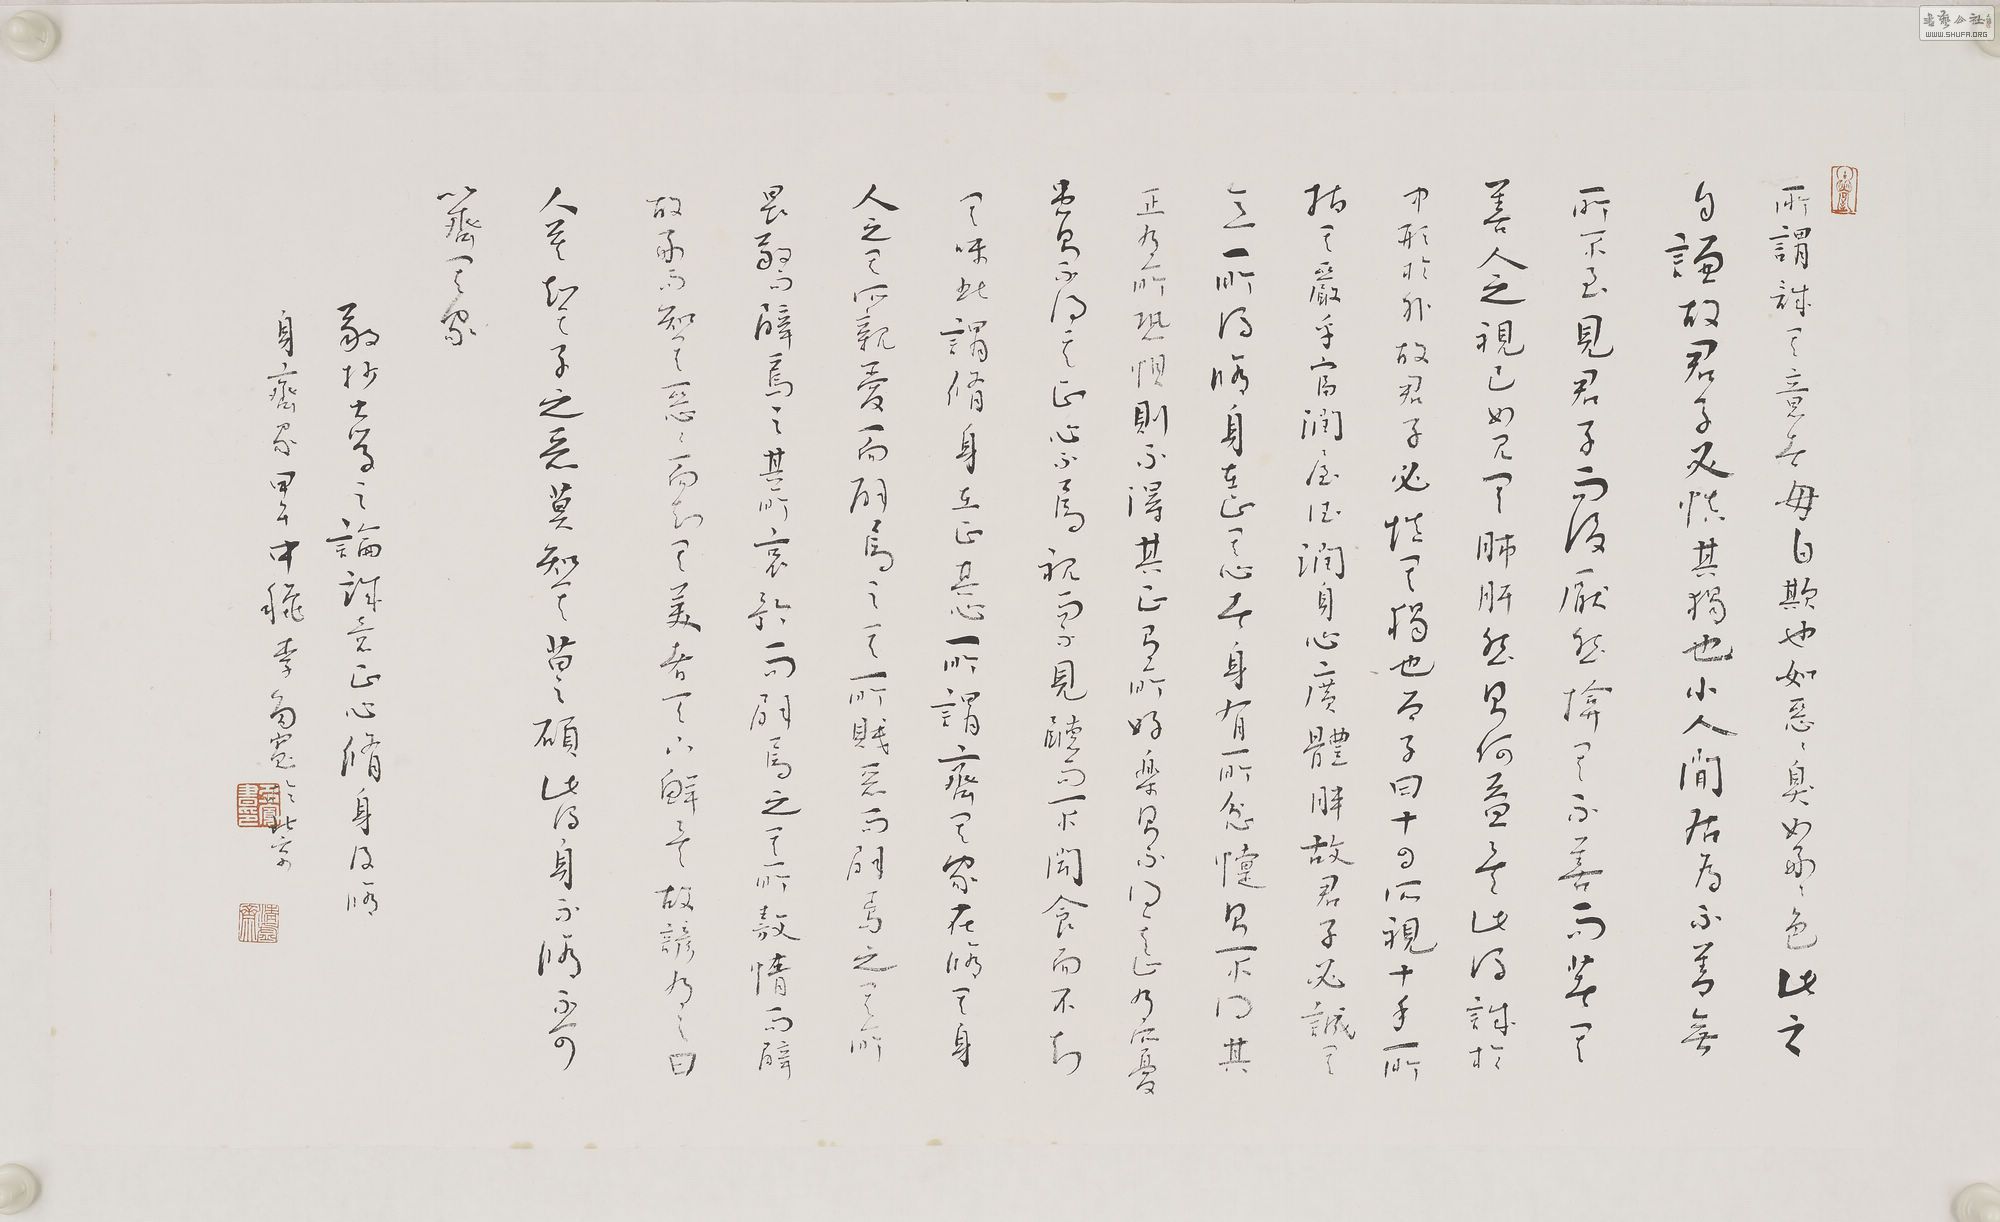 所謂誠其意者毋自欺也如惡惡臭如好好色此之
自謙故君子必慎其獨也小人閒居為不善無
所不至見君子而後厭然揜其不善而著其
善人之視己如見其肺肝然則何益矣此謂誠於
中形於外故君子必慎其獨也曾子曰十目所視十手所
指其嚴乎富潤屋德潤身心廣體胖故君子必誠其
意所謂脩身在正其心者身有所忿懥則不得其
正有所恐懼則不得其正有所好樂則不得其正有所憂
患則不得其正心不在焉視而不見聽而不聞食而不知
其味此謂脩身在正其心所謂齊其家在脩其身
人之其所親愛而辟焉之其所賤惡而辟焉之其所
畏敬而辟焉之其所哀矜而辟焉之其所敖惰而辟
故好而知其惡惡而知其美者天下鮮矣故諺有之曰
人莫知其子之惡莫知其苗之碩此謂身不脩不可
以齊其家
敬抄大學之論誠意正心脩身及脩
身齊家甲午中秋李 寬 北京
書藝公社
WWW.SHUFA.ORG